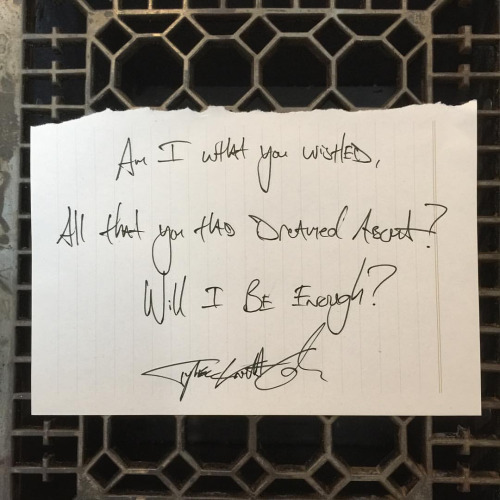 Am I what you wished,
All that you had Dreamed About?
Will I Be Enough?
Tyler Knott